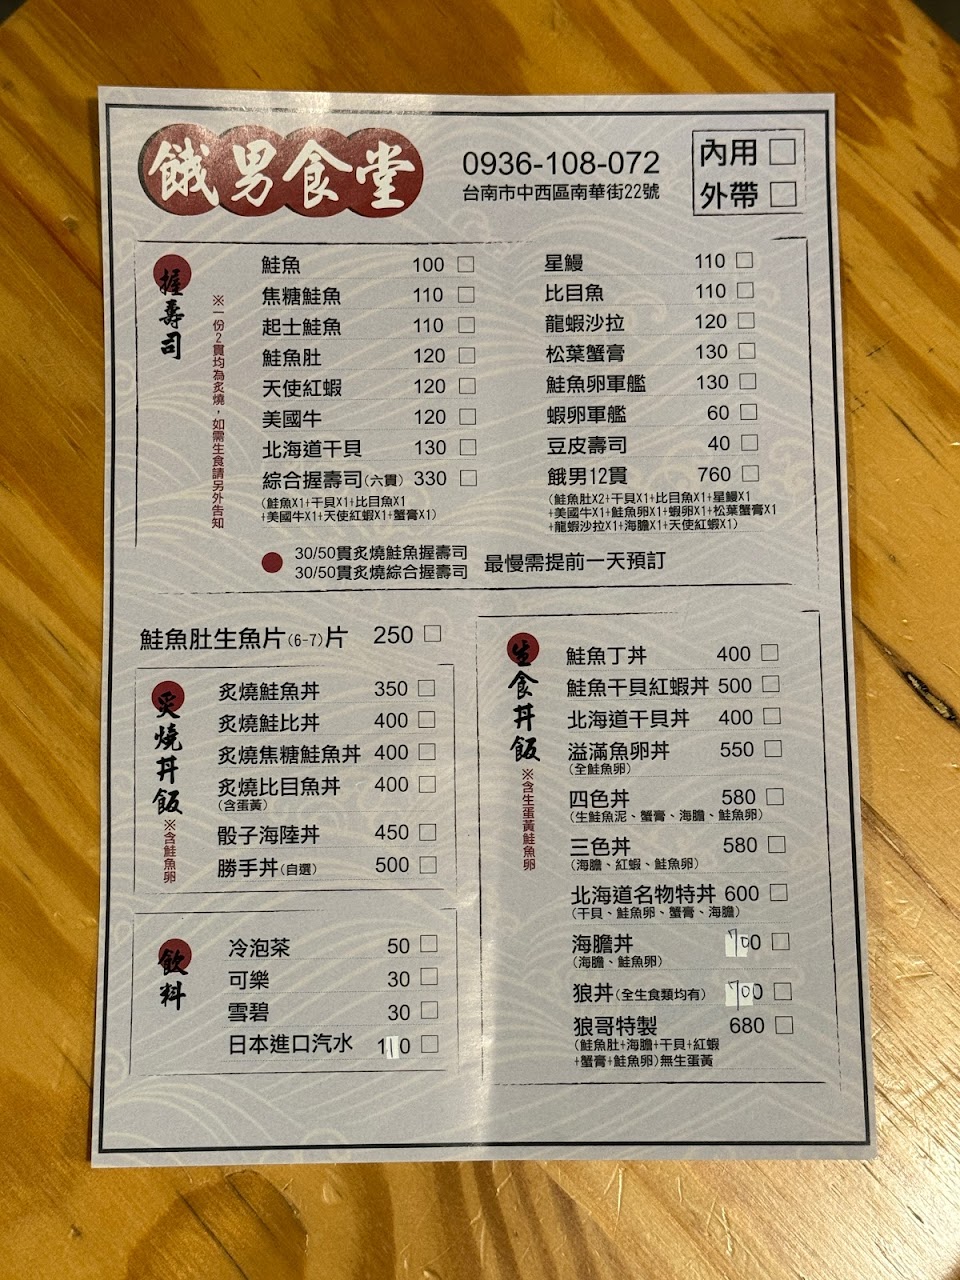 餓男食堂
0936-108-072
台南市中西區南華街22號
內用 □
外帶 □
握壽司
※一份2貫均為炙燒，如需生食請另外告知
鮭魚 100 □
焦糖鮭魚 110 □
起士鮭魚 110 □
鮭魚肚 120 □
天使紅蝦 120 □
美國牛 120 □
北海道干貝 130 □
綜合握壽司(六貫) 330 □
(鮭魚X1+干貝X1+比目魚X1
+美國牛X1+天使紅蝦X1+蟹膏X1)
星鰻 110 □
比目魚 110 □
龍蝦沙拉 120 □
松葉蟹膏 130 □
鮭魚卵軍艦 130 □
蝦卵軍艦 60 □
豆皮壽司 40 □
餓男12貫 760 □
(鮭魚肚X2+干貝X1+比目魚X1+星鰻X1
+美國牛X1+鮭魚卵X1+蝦卵X1+松葉蟹膏X1
+龍蝦沙拉X1+海膽X1+天使紅蝦X1)
30/50貫炙燒鮭魚握壽司
30/50貫炙燒綜合握壽司
最慢需提前一天預訂
鮭魚肚生魚片(6-7)片 250 □
炙燒丼飯
※含鮭魚卵
炙燒鮭魚丼 350 □
炙燒鮭比丼 400 □
炙燒焦糖鮭魚丼 400 □
炙燒比目魚丼 400 □
(含蛋黃)
骰子海陸丼 450 □
勝手丼(自選) 500 □
飲料
冷泡茶 50 □
可樂 30 □
雪碧 30 □
日本進口汽水 110 □
生食丼飯
※含生蛋黃鮭魚卵
鮭魚丁丼 400 □
鮭魚干貝紅蝦丼 500 □
北海道干貝丼 400 □
溢滿魚卵丼 550 □
(全鮭魚卵)
四色丼 580 □
(生鮭魚泥、蟹膏、海膽、鮭魚卵)
三色丼 580 □
(海膽、紅蝦、鮭魚卵)
北海道名物特丼 600 □
(干貝、鮭魚卵、蟹膏、海膽)
海膽丼 700 □
(海膽、鮭魚卵)
狼丼(全生食類均有) 700 □
狼哥特製 680 □
(鮭魚肚+海膽+干貝+紅蝦
+蟹膏+鮭魚卵)無生蛋黃